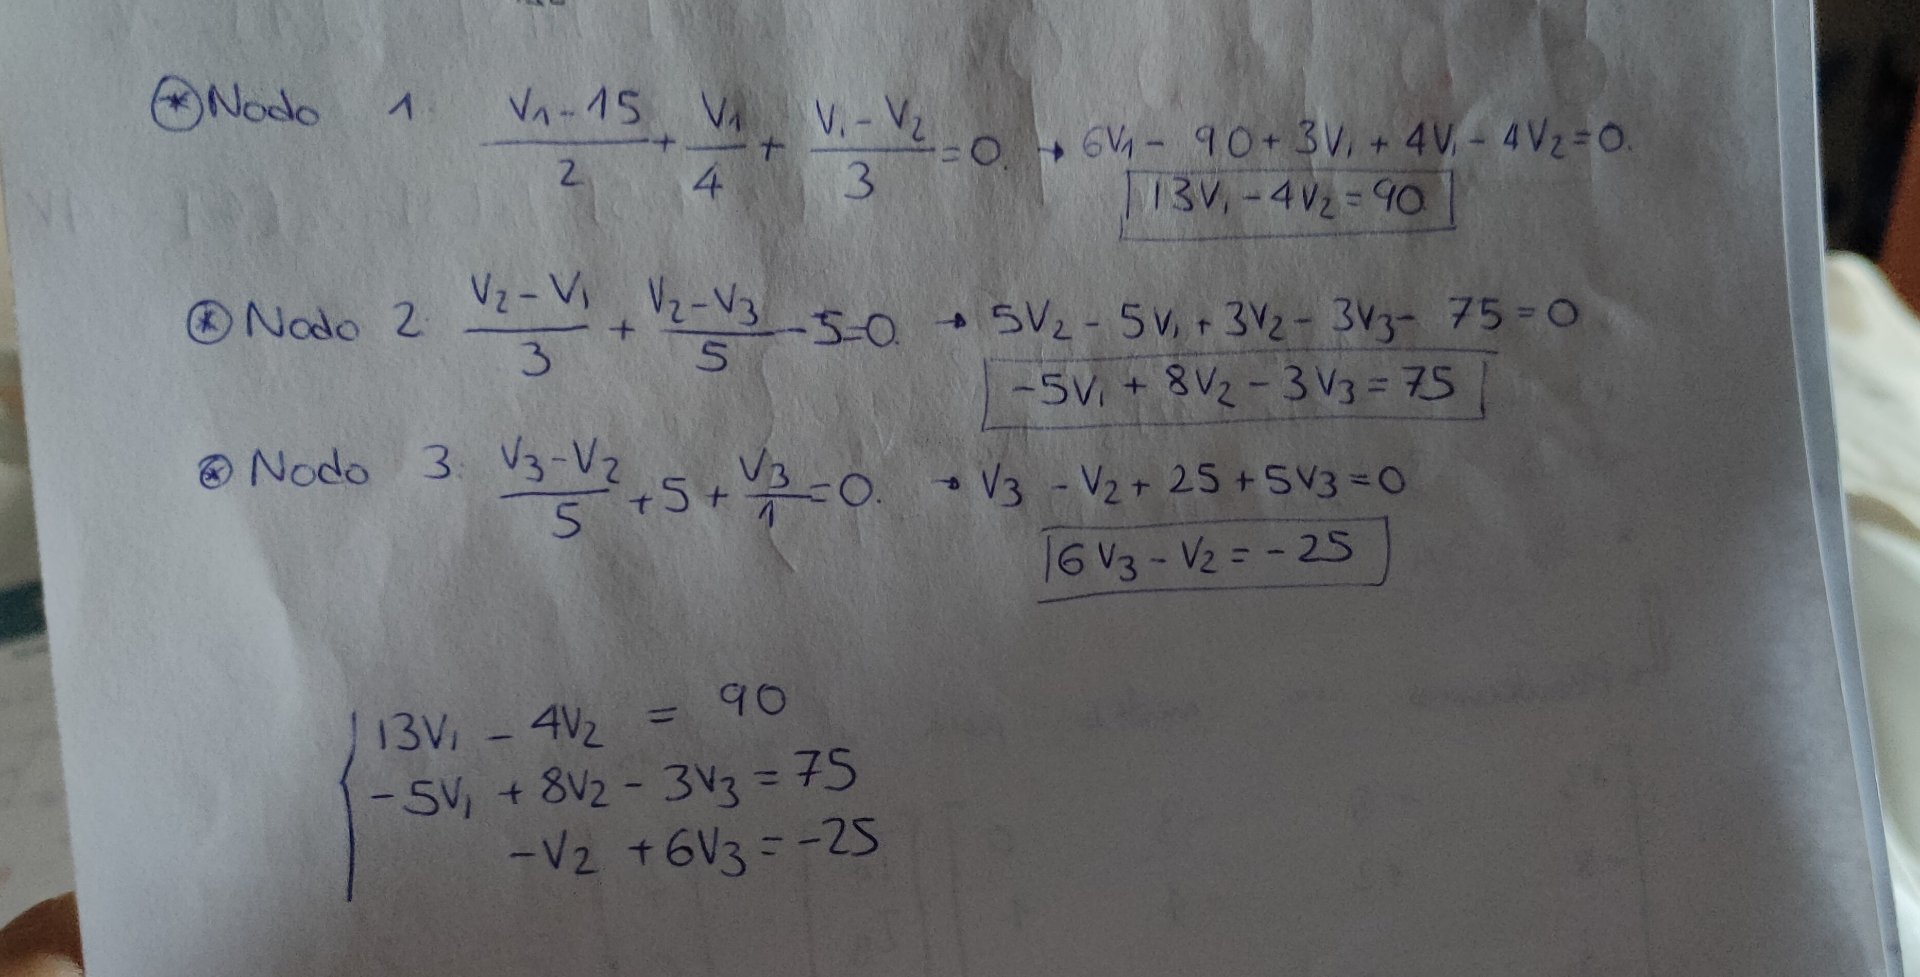 ⊛ Nodo 1. (V₁-15)/2 + V₁/4 + (V₁-V₂)/3 = 0. → 6V₁ - 90 + 3V₁ + 4V₁ - 4V₂ = 0.
13V₁ - 4V₂ = 90
⊛ Nodo 2. (V₂-V₁)/3 + (V₂-V₃)/5 - 5 = 0. → 5V₂ - 5V₁ + 3V₂ - 3V₃ - 75 = 0
-5V₁ + 8V₂ - 3V₃ = 75
⊛ Nodo 3. (V₃-V₂)/5 + 5 + V₃/1 = 0. → V₃ - V₂ + 25 + 5V₃ = 0
6V₃ - V₂ = -25
13V₁ - 4V₂ = 90
-5V₁ + 8V₂ - 3V₃ = 75
-V₂ + 6V₃ = -25